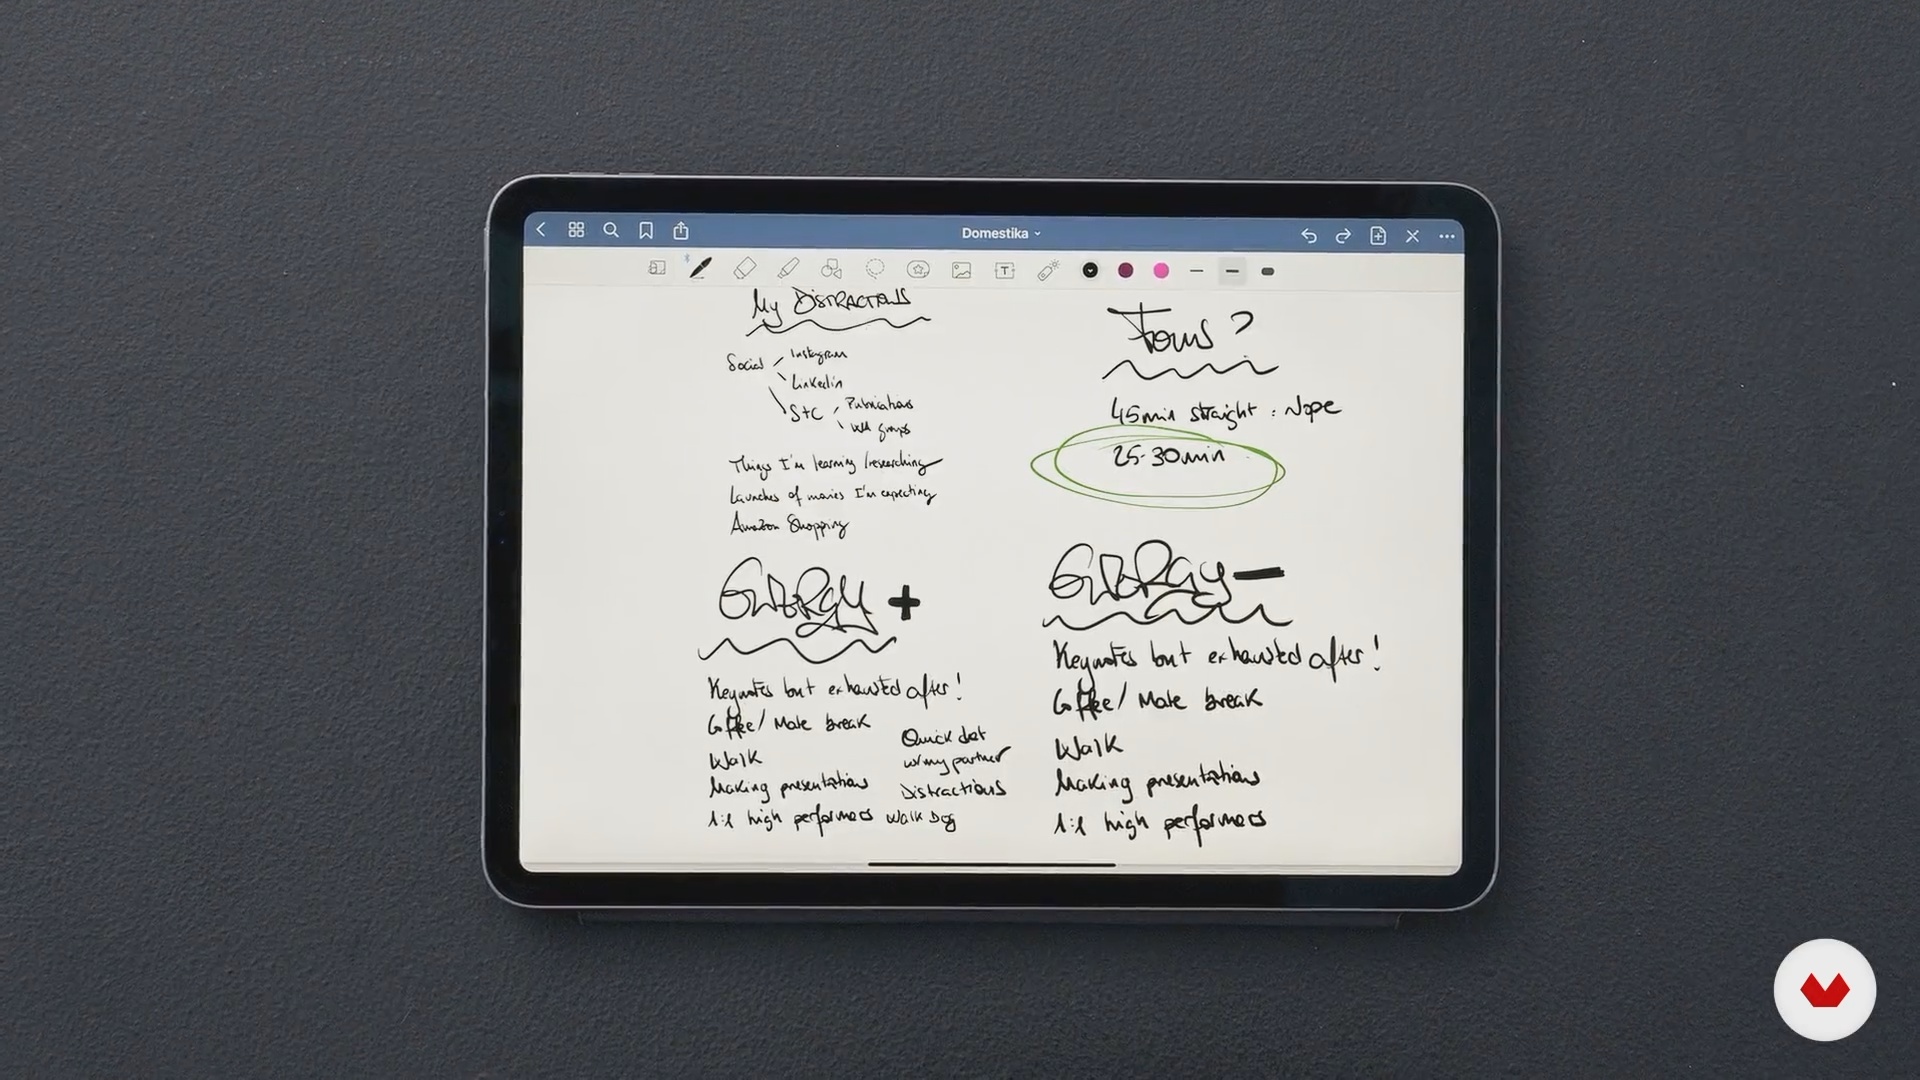 Domestika
My DISTRACTIONS
Social
Instagram
Linkedin
S+C
Publications
Things I'm learning /researching
Launches of movies I'm expecting
Amazon Shopping
Focus?
45min straight : Nope
25-30min
ENERGY +
Keynotes but exhausted after!
Coffee/ Mate break
Walk
Making presentations
1:1 high performers
Quick chat
w/my partner
Distractions
Walk Dog
ENERGY -
Keynotes but exhausted after!
Coffee/ Mate break
Walk
Making presentations
1:1 high performers